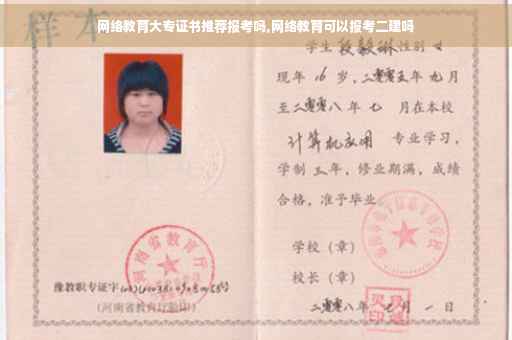 网络教育大专证书推荐报考吗,网络教育可以报考二建吗
样本
学生 段毅琳 性别 女
现年 16 岁,二零零五年 九月
至二零零八年 七 月在本校
计算机应用 专业学习,
学制 三 年,修业期满,成绩
合格,准予毕业
学校(章)
校长(章)
二零零八年 七 月 一 日
河南省教育厅
豫教职专证字
(河南省教育厅验印)